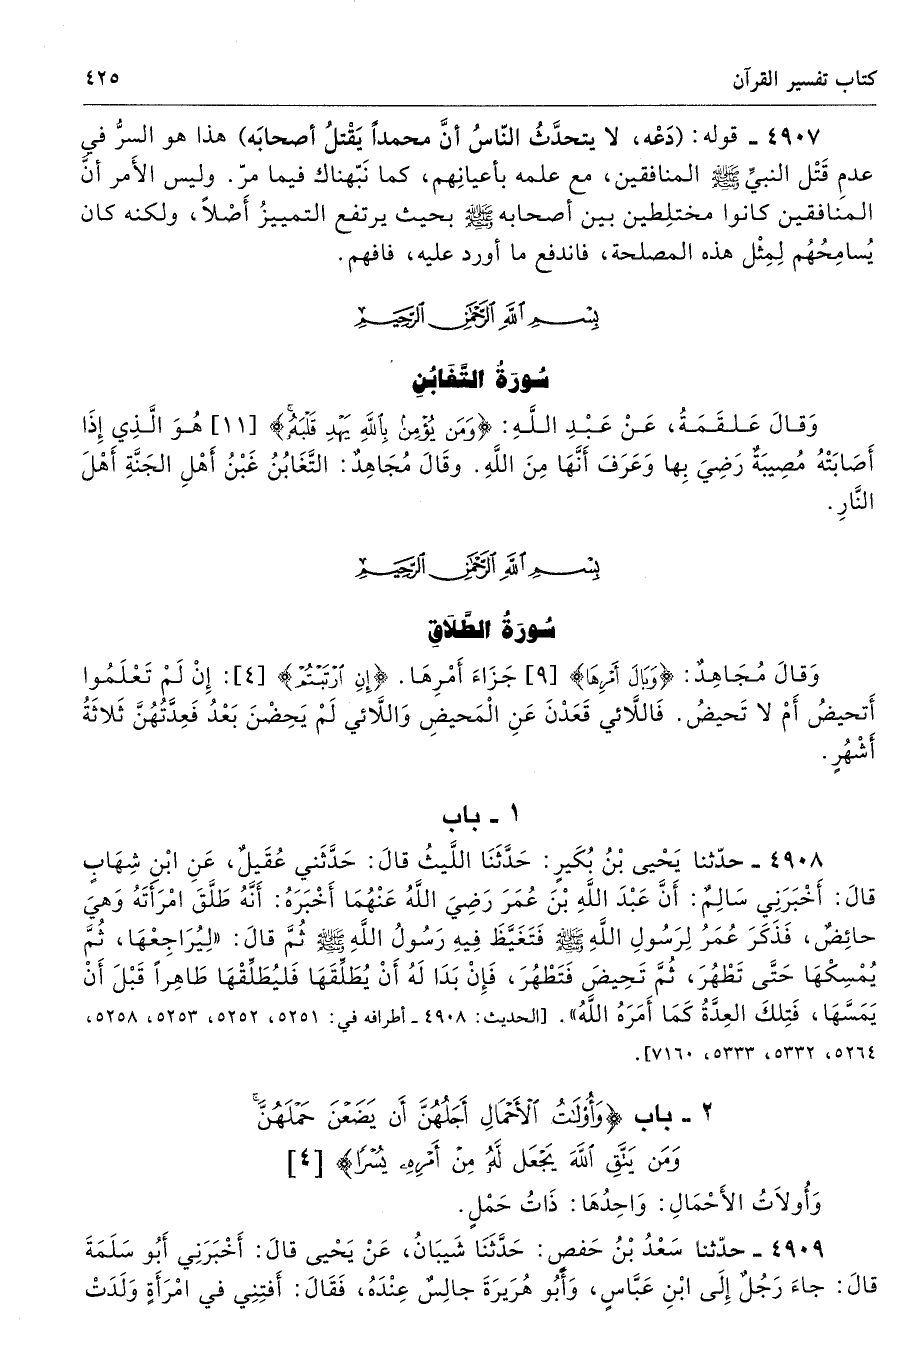 كتاب تفسير القرآن ٤٢٥
٤٩٠٧ ـ قوله: (دَعْه، لا يتحدَّثُ النّاسُ أنَّ محمداً يَقْتلُ أصحابَه) هذا هو السرُّ في
عدمِ قَتْل النبيِّ ﷺ المنافقين، مع علمه بأعيانِهم، كما نَبّهناك فيما مرّ. وليس الأمر أنَّ
المنافقين كانوا مختلِطين بين أصحابه ﷺ بحيث يرتفع التمييزُ أَصْلاً، ولكنه كان
يُسامِحُهُم لِمِثْل هذه المصلحة، فاندفع ما أورد عليه، فافهم.
بِسْمِ ٱللَّهِ ٱلرَّحْمَٰنِ ٱلرَّحِيمِ
سُورَةُ التَّغَابُنِ
وَقالَ عَلقَمَةُ، عَنْ عَبْدِ اللَّهِ: ﴿وَمَن يُؤْمِنۢ بِٱللَّهِ يَهْدِ قَلْبَهُۥۚ﴾ [١١] هُوَ الَّذِي إِذَا
أَصَابَتْهُ مُصِيبَةٌ رَضِيَ بِها وَعَرَفَ أَنَّهَا مِنَ اللَّهِ. وقالَ مُجَاهِدٌ: التَّغَابُنُ غَبْنُ أَهْلِ الجَنَّةِ أَهْلَ
النَّارِ.
بِسْمِ ٱللَّهِ ٱلرَّحْمَٰنِ ٱلرَّحِيمِ
سُورَةُ الطَّلَاقِ
وَقالَ مُجَاهِدٌ: ﴿وَبَالَ أَمْرِهَا﴾ [٩] جَزَاءَ أَمْرِهَا. ﴿إِنِ ٱرْتَبْتُمْ﴾ [٤]: إِنْ لَمْ تَعْلَمُوا
أَتحيضُ أَمْ لا تَحيضُ. فَاللَّائي قَعَدْنَ عَنِ الْمَحيضِ وَاللَّائي لَمْ يَحِضْنَ بَعْدُ فَعِدَّتُهُنَّ ثَلاثَةُ
أَشْهُرٍ.
١ ـ باب
٤٩٠٨ ـ حدّثنا يَحْيى بْنُ بُكَيرٍ: حَدَّثَنَا اللَّيثُ قالَ: حَدَّثَني عُقَيلٌ، عَنِ ابْنِ شِهَابٍ
قالَ: أَخْبَرَنِي سَالِمٌ: أَنَّ عَبْدَ اللَّهِ بْنَ عُمَرَ رَضِيَ اللَّهُ عَنْهُمَا أَخْبَرَهُ: أَنَّهُ طَلَّقَ امْرَأَتَهُ وَهيَ
حائِضٌ، فَذَكَرَ عُمَرُ لِرَسُولِ اللَّهِ ﷺ فَتَغَيَّظَ فِيهِ رَسُولُ اللَّهِ ﷺ ثُمَّ قالَ: «لِيُرَاجِعْهَا، ثُمَّ
يُمْسِكْهَا حَتَّى تَطْهُرَ، ثُمَّ تَحِيضَ فَتَطْهُرَ، فَإِنْ بَدَا لَهُ أَنْ يُطَلِّقَهَا فَليُطَلِّقْهَا طَاهِراً قَبْلَ أَنْ
يَمَسَّهَا، فَتِلكَ العِدَّةُ كَمَا أَمَرَهُ اللَّهُ». [الحديث: ٤٩٠٨ ـ أطرافه في: ٥٢٥١، ٥٢٥٢، ٥٢٥٣، ٥٢٥٨،
٥٢٦٤، ٥٣٣٢، ٥٣٣٣، ٧١٦٠].
٢ ـ باب ﴿وَأُوْلَٰتُ ٱلْأَحْمَالِ أَجَلُهُنَّ أَن يَضَعْنَ حَمْلَهُنَّۚ
وَمَن يَتَّقِ ٱللَّهَ يَجْعَل لَّهُۥ مِنْ أَمْرِهِۦ يُسْرًا﴾ [٤]
وَأُولاَتُ الأَحْمَالِ: وَاحِدُهَا: ذَاتُ حَمْلٍ.
٤٩٠٩ ـ حدّثنا سَعْدُ بْنُ حَفصٍ: حَدَّثَنَا شَيبَانُ، عَنْ يَحْيى قالَ: أَخْبَرَنِي أَبُو سَلَمَةَ
قالَ: جاءَ رَجُلٌ إِلَى ابْنِ عَبَّاسٍ، وَأَبُو هُرَيرَةَ جالِسٌ عِنْدَهُ، فَقَالَ: أَفتِنِي في امْرَأَةٍ وَلَدَتْ